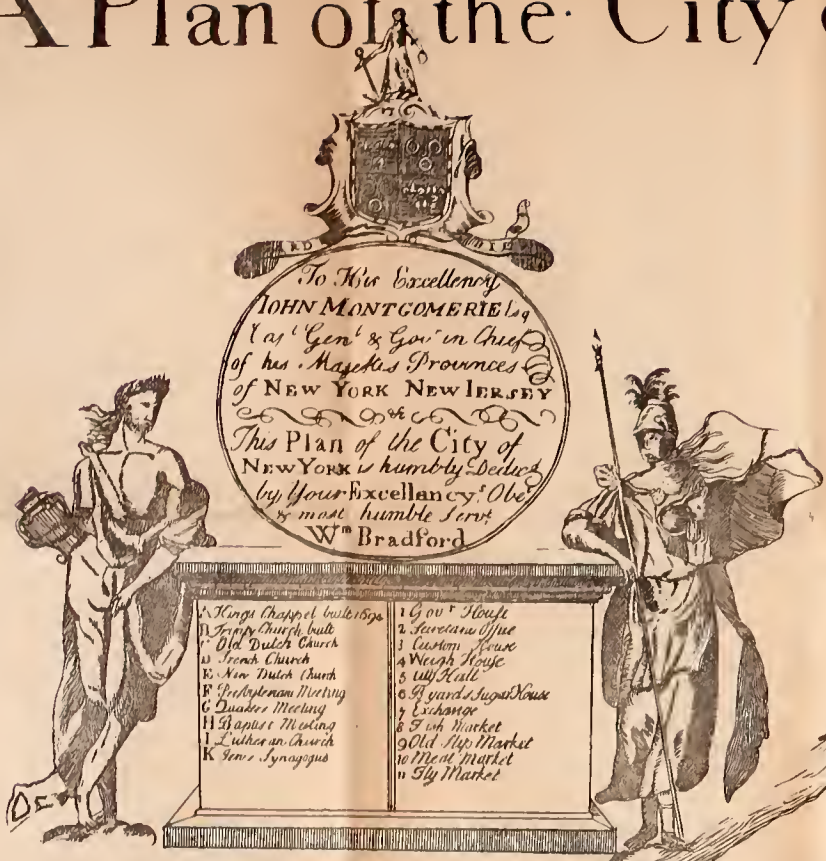 A Plan of the City
To His Excellency
IOHN MONTGOMERIE Esq
Capt Genl & Govr in Chief
of his Majesties Provinces
of NEW YORK NEW IERSEY
&c
This Plan of the City of
NEW YORK is humbly Dedicd
by Your Excellancys Obet
& most humble Servt
Wm Bradford
A Kings Chappel built 1694
B Trinity Church built
C Old Dutch Church
D French Church
E New Dutch Church
F Presbyterian Meeting
G Quakers Meeting
H Baptist Meeting
I Lutheran Church
K Jews Synagogus
1 Govr House
2 Secretaris Office
3 Custom House
4 Weigh House
5 City Hall
6 Byards Sugar House
7 Exchange
8 Fish Market
9 Old Slip Market
10 Meat Market
11 Fly Market